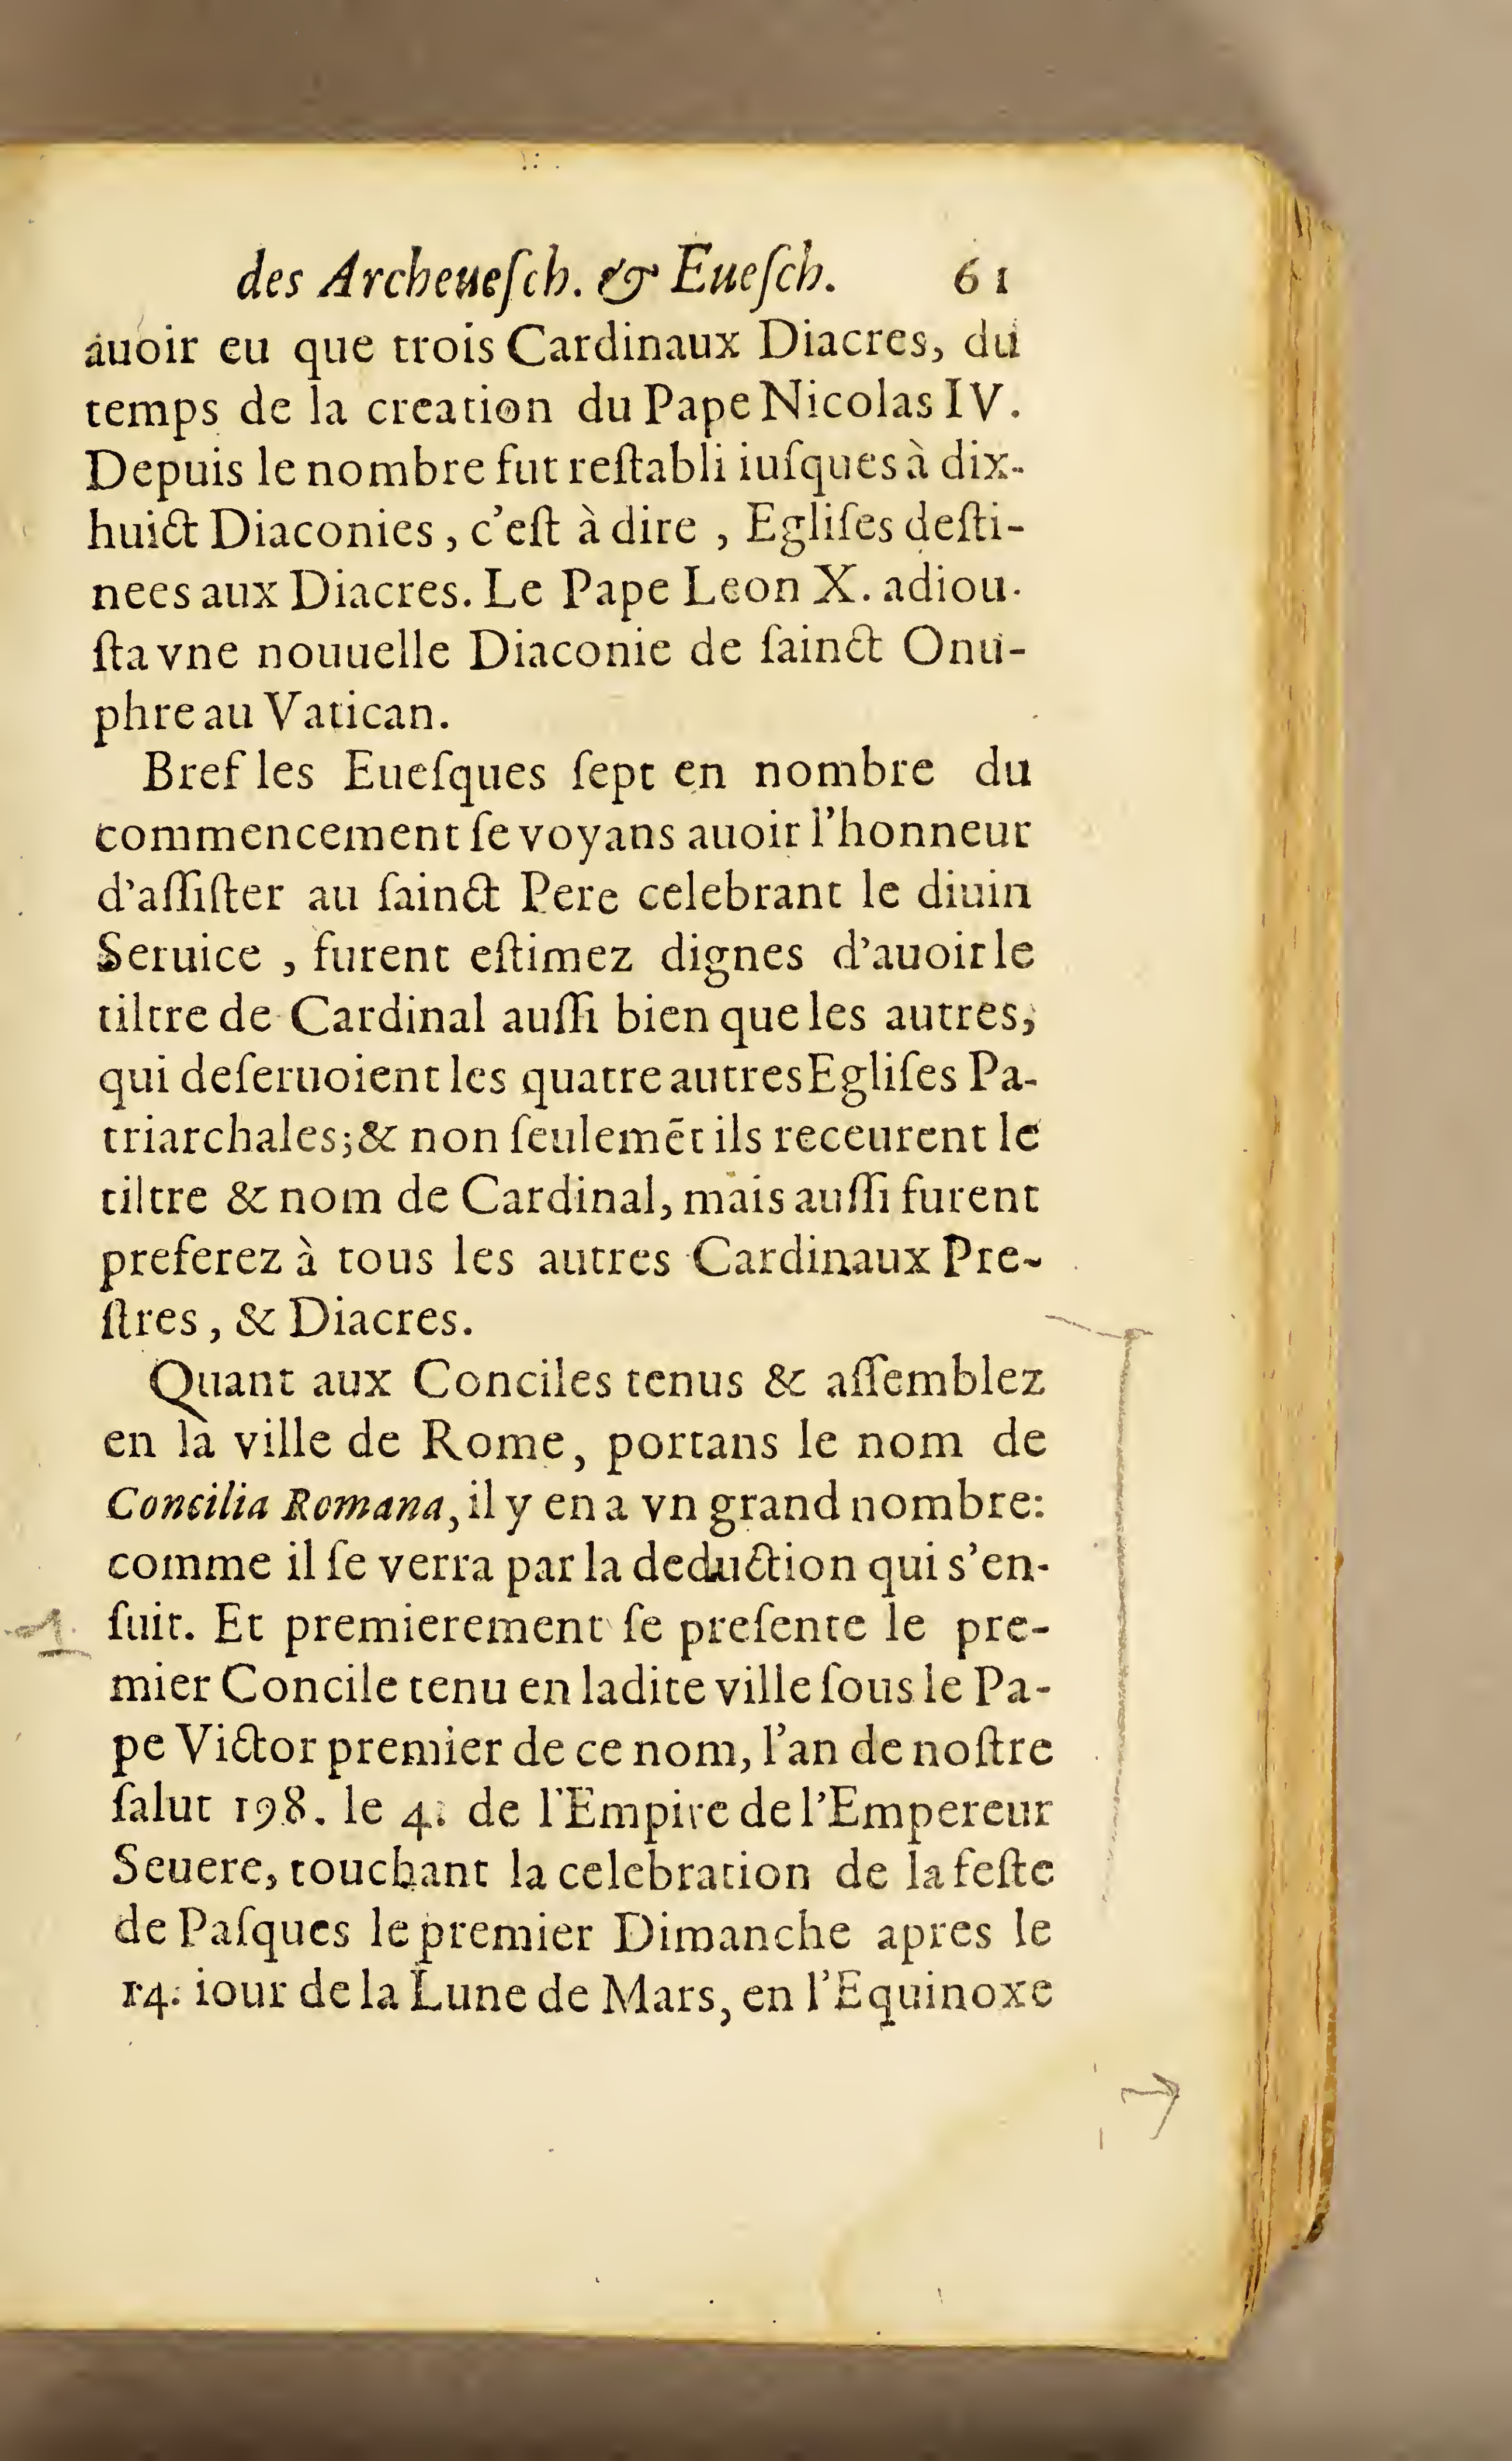 des Archeueſch. & Eueſch. 61
auoir eu que trois Cardinaux Diacres, du
temps de la creation du Pape Nicolas IV.
Depuis le nombre fut reſtabli iuſques à dix-
huict Diaconies, c'eſt à dire, Egliſes deſti-
nees aux Diacres. Le Pape Leon X. adiou-
ſta vne nouuelle Diaconie de ſainct Onu-
phre au Vatican.
Bref les Eueſques ſept en nombre du
commencement ſe voyans auoir l'honneur
d'aſſiſter au ſainct Pere celebrant le diuin
Seruice, furent eſtimez dignes d'auoir le
tiltre de Cardinal auſſi bien que les autres,
qui deſeruoient les quatre autres Egliſes Pa-
triarchales; & non ſeulemēt ils receurent le
tiltre & nom de Cardinal, mais auſſi furent
preferez à tous les autres Cardinaux Pre-
ſtres, & Diacres.
Quant aux Conciles tenus & aſſemblez
en la ville de Rome, portans le nom de
Concilia Romana, il y en a vn grand nombre:
comme il ſe verra par la deduction qui s'en-
ſuit. Et premierement ſe preſente le pre-
mier Concile tenu en ladite ville ſous le Pa-
pe Victor premier de ce nom, l'an de noſtre
ſalut 198. le 4. de l'Empire de l'Empereur
Seuere, touchant la celebration de la feſte
de Paſques le premier Dimanche apres le
14. iour de la Lune de Mars, en l'Equinoxe